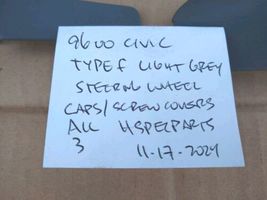 9600 CIVIC
TYPE F LIGHT GREY
STEERING WHEEL
CAPS/SCREW COVERS
ALL HSPECPARTS
3 11-17-2024